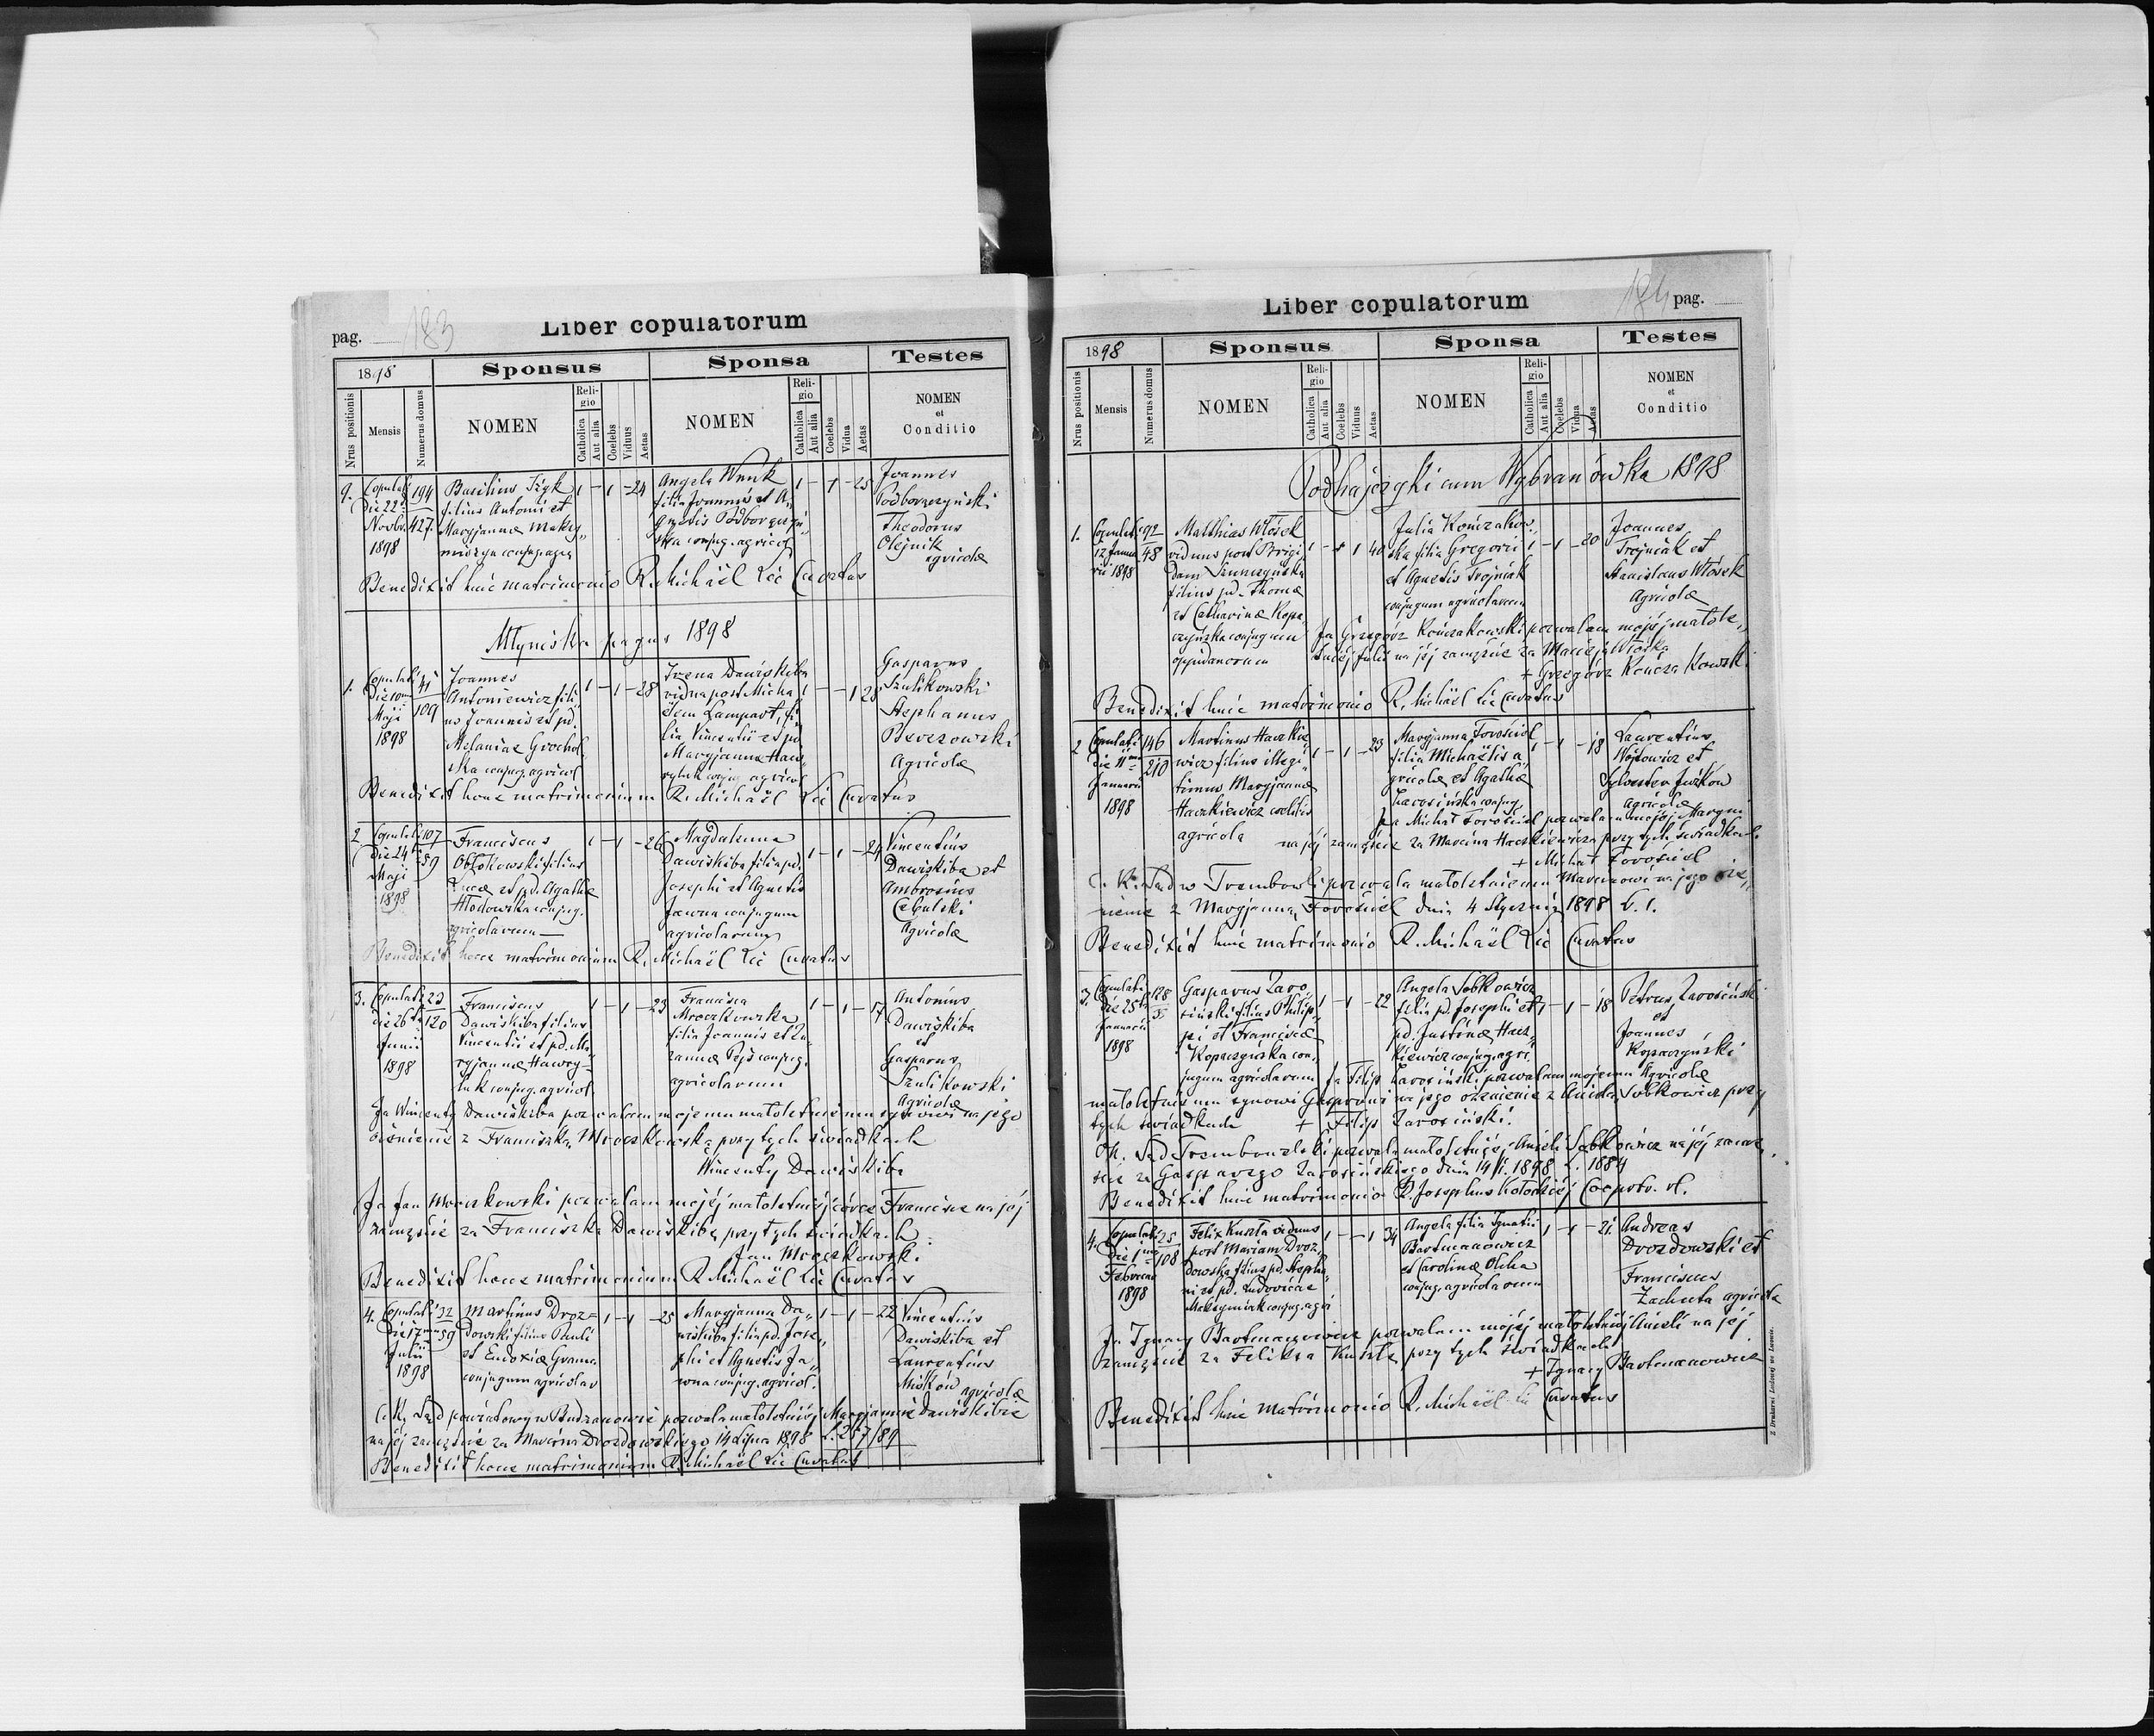 pag. 183
Liber copulatorum
1898
Sponsus
Sponsa
Testes
Nrus positionis
Mensis
Numerus domus
NOMEN
Religio
Catholica
Aut alia
Coelebs
Viduus
Aetas
NOMEN
Religio
Catholica
Aut alia
Coelebs
Vidua
Aetas
NOMEN
et
Conditio
9. Copulati
Die 22
Novbr.
1898
194
427.
Basilius
filius Antonii et
Maryjannae
conjug. agric
1 – 1 – 24
Angela Wnuk
filia Joannis et A„
gnetis Podborączyń„
ska conjug. agricol
1 – 1 – 25
Joannes
Podborączyński
Theodorus
Olejnik
agricolae
Benedixit huic matrimonio R. Michaël Lić Curatus
Młyniska pagus 1898
1. Copulati
Die 10
Maji
1898
41
109
Joannes
Antoniewicz fili„
us Joannis et pd.
Melaniae Grochol„
ska conjug. agricol
1 – 1 – 28
Irena Dawiskiba
vidua post Micha„
ëlem Lampart, fi„
lia Vincentii et pd
Maryjanna Haw„
ryluk conjug. agricol
1 – – 1 28
Gasparus
Szulikowski
Stephanus
Berezowski
Agricolae
Benedixit hocce matrimonium R. Michaël Lić Curatus
2 Copulati
Die 24
Maji
1898
107
59
Franciscus
Obłokowski filius
Lucae et pd. Agathae
Hłodowska conjug.
agricolarum
1 – 1 – 26
Magdalena
Dawiskiba filia pd.
Josephi et Agnetis
Jawna conjugum
agricolarum
1 – 1 – 24
Vincentius
Dawiskiba et
Ambrosius
Cebulski
Agricolae
Benedixit hocce matrimonium R. Michaël Lić Curatus
3. Copulati
Die 26
Junii
1898
23
120
Franciscus
Dawiskiba filius
Vincentii et pd. Ma„
ryjannae Hawry–
luk conjug. agricol
1 – 1 – 23
Francisca
Mroczkowska
filia Joannis et Zu„
zannae conjug.
agricolarum
1 – 1 – 17
Antonius
Dawiskiba
et
Gasparus
Szulikowski
Agricolae
Ja Wincenty Dawiskiba pozwalam mojemu małoletniemu synowi na jego
ożenienie z Franciszką Mroczkowską przy tych świadkach
Wincenty Dawiskiba
Ja Jan Mroczkowski pozwalam mojéj małoletniéj córce Francisce na jéj
zamęście za Franciszka Dawiskibę przy tych świadkach
Jan Mroczkowski.
Benedixit hocce matrimonium R. Michaël Lić Curatus
4. Copulati
Die 17
Julii
1898
32
59
Martinus Droz=
dowski filius Pauli
et Eudoxiae
conjugum agricolar
1 – 1 – 25
Maryjanna Da„
wiskiba filia pd. Jose„
phi et Agnetis Ja„
wna conjug. agricol.
1 – 1 – 22
Vincentius
Dawiskiba et
Laurentius
Miśków agricolae
C. K. Sąd powiatowy w Budzanowie pozwala małoletniéj Maryjannie Dawiskibie
na jéj zamęście za Marcina Drozdowskiego 14 Lipca 1898 L. 257/89
Benedixit hocce matrimonium R. Michaël Lić Curatus
184 pag.
Liber copulatorum
1898
Sponsus
Sponsa
Testes
Nrus positionis
Mensis
Numerus domus
NOMEN
Religio
Catholica
Aut alia
Coelebs
Viduus
Aetas
NOMEN
Religio
Catholica
Aut alia
Coelebs
Vidua
Aetas
NOMEN
et
Conditio
Podhajczyki cum Wybranówka 1898
1. Copulati
12 Janua
rii 1898
92
48
Matthias Włósek
viduus post Brigi„
dam
filius pd. Thomae
et Catharinae Kopa„
czyńska conjugum
oppidanorum
1 – – 1 40
Julia Kończakow„
ska filia Gregorii
et Agnetis Trojniak
conjugum agricolarum
1 – 1 – 20
Joannes
Trojniak et
Stanislaus Włósek
Agricolae
Ja Grzegórz Kończakowski pozwalam mojéj małole„
tniéj Julii na jéj zamęście za Macieja Włóska
+ Grzegórz Kończakowski
Benedixit huic matrimonio R. Michaël Lić Curatus
2 Copulati
die 11
Januarii
1898
146
210
Martinus Haczkie„
wicz filius illegi„
timus Maryjannae
Haczkiewicz coelibis
agricola
1 – 1 – 23
Maryjanna Torościel
filia Michaëlis a„
gricolae et Agathae
Zarosińska conjug
1 – 1 – 18
Laurentius
Wójtowicz et
Sylvester Juzków
Agricolae
Ja Michał Torościel pozwalam mojéj Maryni
na jéj zamęście za Marcina Haczkiewicza przy tych świadkach
+ Michał Torościel
C. K. Sąd w Trembowli pozwala małoletniemu Marcinowi na jego oże„
nienie z Maryjanną Torościel dnia 4 Stycznia 1898 L. 1.
Benedixit huic matrimonio R. Michaël Lić Curatus
3. Copulati
Die 25
Januarii
1898
128
35
Gasparus Zaro„
siński filius Philip„
pi et Franciscae
Kopaczyńska con„
jugum agricolarum
1 – 1 – 22
Angela Sobkowicz
filia pd. Josephi et
pd. Justinae Hacz„
kiewicz conjug. agri.
1 – 1 – 18
Petrus Zarosiński
et
Joannes
Kopaczyński
Agricolae
Ja Filip Zarosiński pozwalam mojemu
małoletniemu synowi Gasprowi na jego ożenienie z Anielą Sobkowicz przy
tych świadkach + Filip Zarosiński.
CK. Sąd Trembowelski pozwala małoletniéj Anieli Sobkowicz na jéj zamę„
ście za Gasprowego Zarosińskiego dnia 14/I. 1898 L. 1884
Benedixit huic matrimonio R. Josephus Kołodziéj Cooprtr. rl.
4. Copulati
Die 1
Februarii
1898
25
108
Felix Kuszta viduus
post Mariam Droz„
dowska filius pd. Stepha„
ni et pd. Ludovicae
Maksymiuk conjug. agri
1 – – 1 34
Angela filia Ignatii
Bartmanowicz
et Carolinae Olcha
conjug. agricolarum
1 – 1 – 21
Andreas
Drozdowski et
Franciscus
Zacheta agricolae
Ja Ignacy Bartmanowicz pozwalam mojéj małoletniéj Anieli na jéj
zamęście za Feliksa Kusztę przy tych świadkach
+ Ignacy Bartmanowicz
Benedixit huic matrimonio R. Michaël Lić Curatus
Z Drukarni Ludowej we Lwowie.